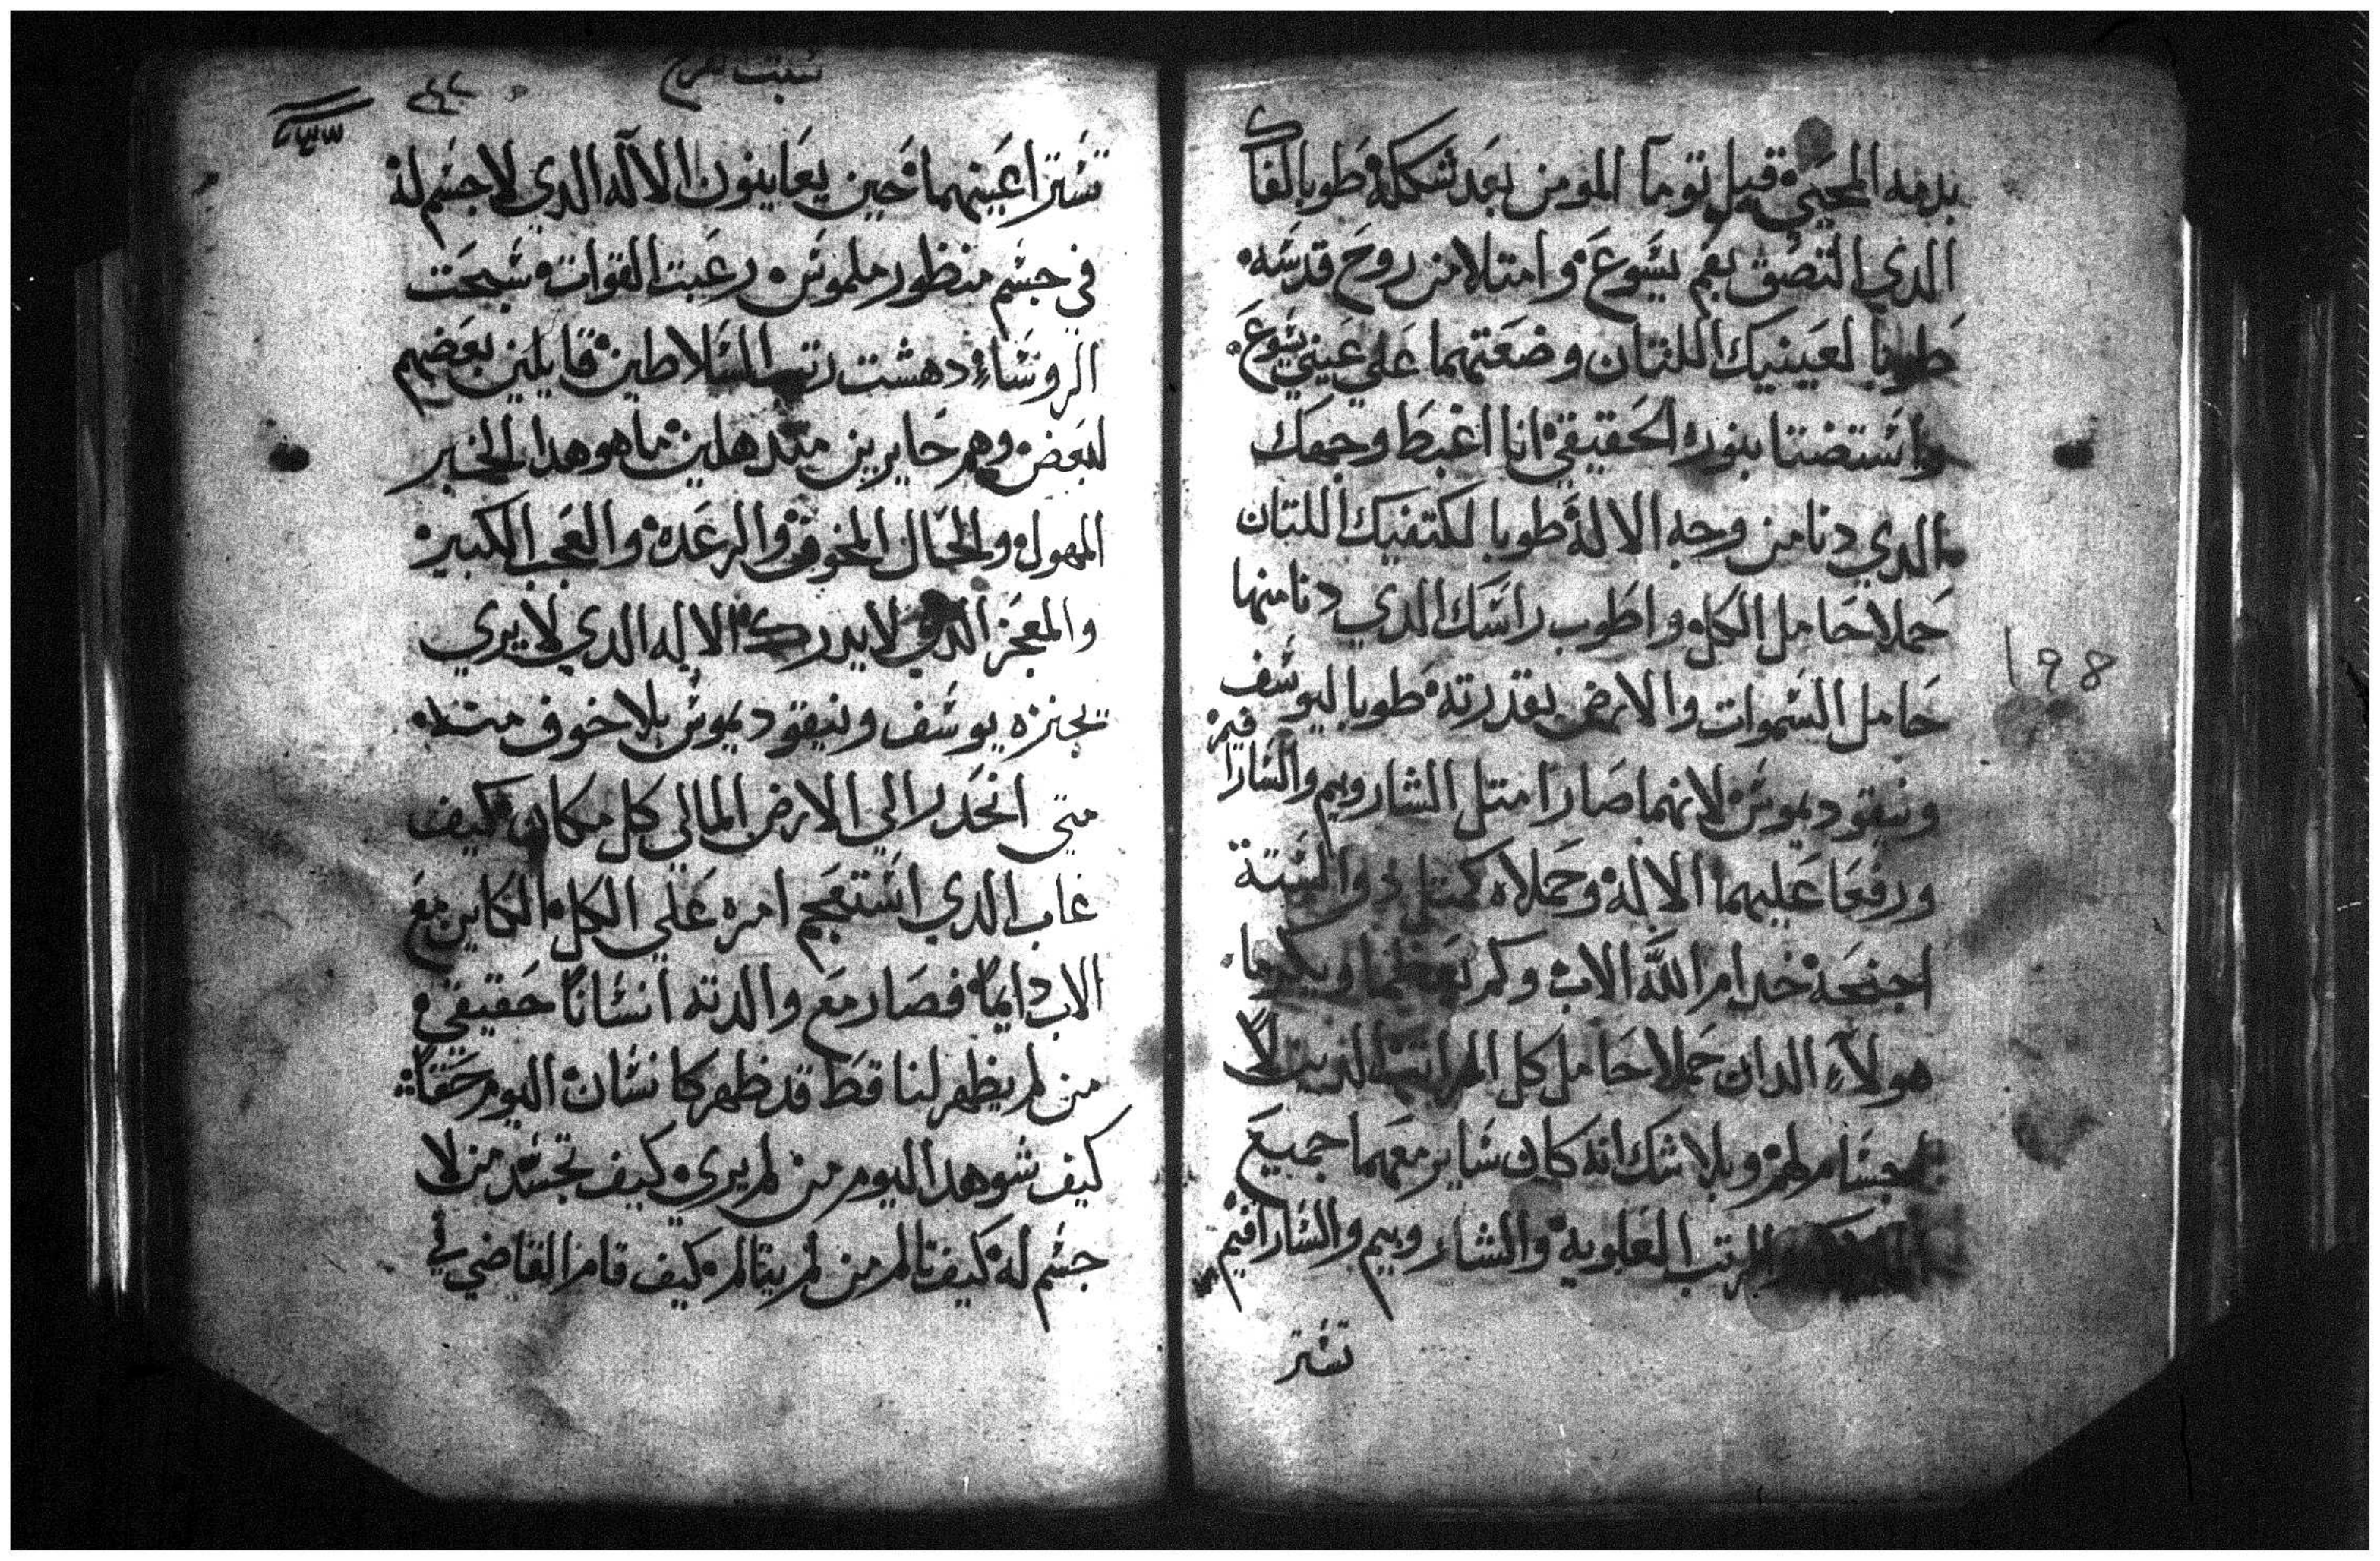 بدمه المحيي قبل توما المومن بعد شكله طوبا لفاك
الدي التصق بفم يسوع وامتلا من روح قدسه
طوبا لعينيك اللتان وضعتهما علي عيني يسوع
واستضتا بنوره الحقيقي انا اغبط وجهك
الدي دنا من وجه الاله طوبا لكتفيك اللتان
حملا حامل الكل واطوب راسك الدي دنا منها
حامل السموات والارض بقدرته طوبا ليوسف
ونيقوديموس لانهما صارا متل الشاروبيم والسارافيم
ورفعا عليهما الاله وحملاه كمتل دوا الستة
اجنحة خدام الله الاب وكم
هولاء الدان حملا حامل كل
اجسام لهم وبلا شك انه كان ساير معهما جميع
الرتب العلويه والشاروبيم والسارافيم
تستر
198
سبت الفرح
تستر اعينهما حين يعاينون الالاه الدي لا جسم له
في جسم منظور ملموس رعبت القوات سبحت
الروساء دهشت رتب السلاطين قايلين بعضهم
لبعض وهم حايرين متدهلين ما هو هدا الخبر
المهول والحال المخوف والرعده والعجب الكبير
والمعجز الدي لا يدرك الاله الدي لا يري
تجنزه يوسف ونيقوديموس بلا خوف منه
متي انحدر الي الارض المالي كل مكان كيف
غاب الدي استعجم امره علي الكل الكاين مع
الاب دايما فصار مع والدته انسانا حقيقي
من لم يظهر لنا قط قد ظهر كانسان اليوم حقا
كيف شوهد اليوم من لم يري كيف تجسد من لا
جسم له كيف تالم من لم يتالم كيف قام القاضي في